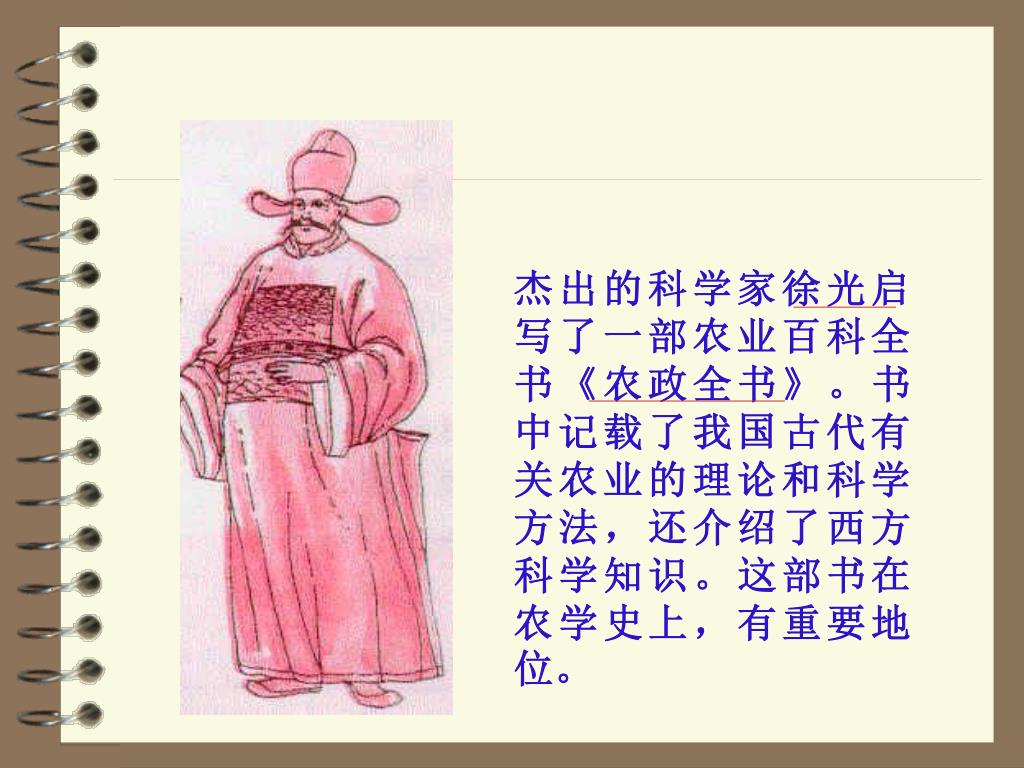 杰出的科学家徐光启
写了一部农业百科全
书《农政全书》。书
中记载了我国古代有
关农业的理论和科学
方法，还介绍了西方
科学知识。这部书在
农学史上，有重要地
位。